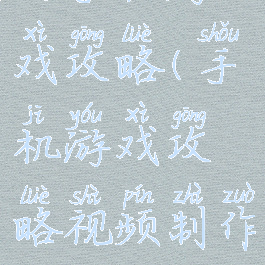 xì gōng lüè shǒu
戏攻略(手
jī yóu xì gōng
机游戏攻
lüè shì pín zhì zuò
略视频制作